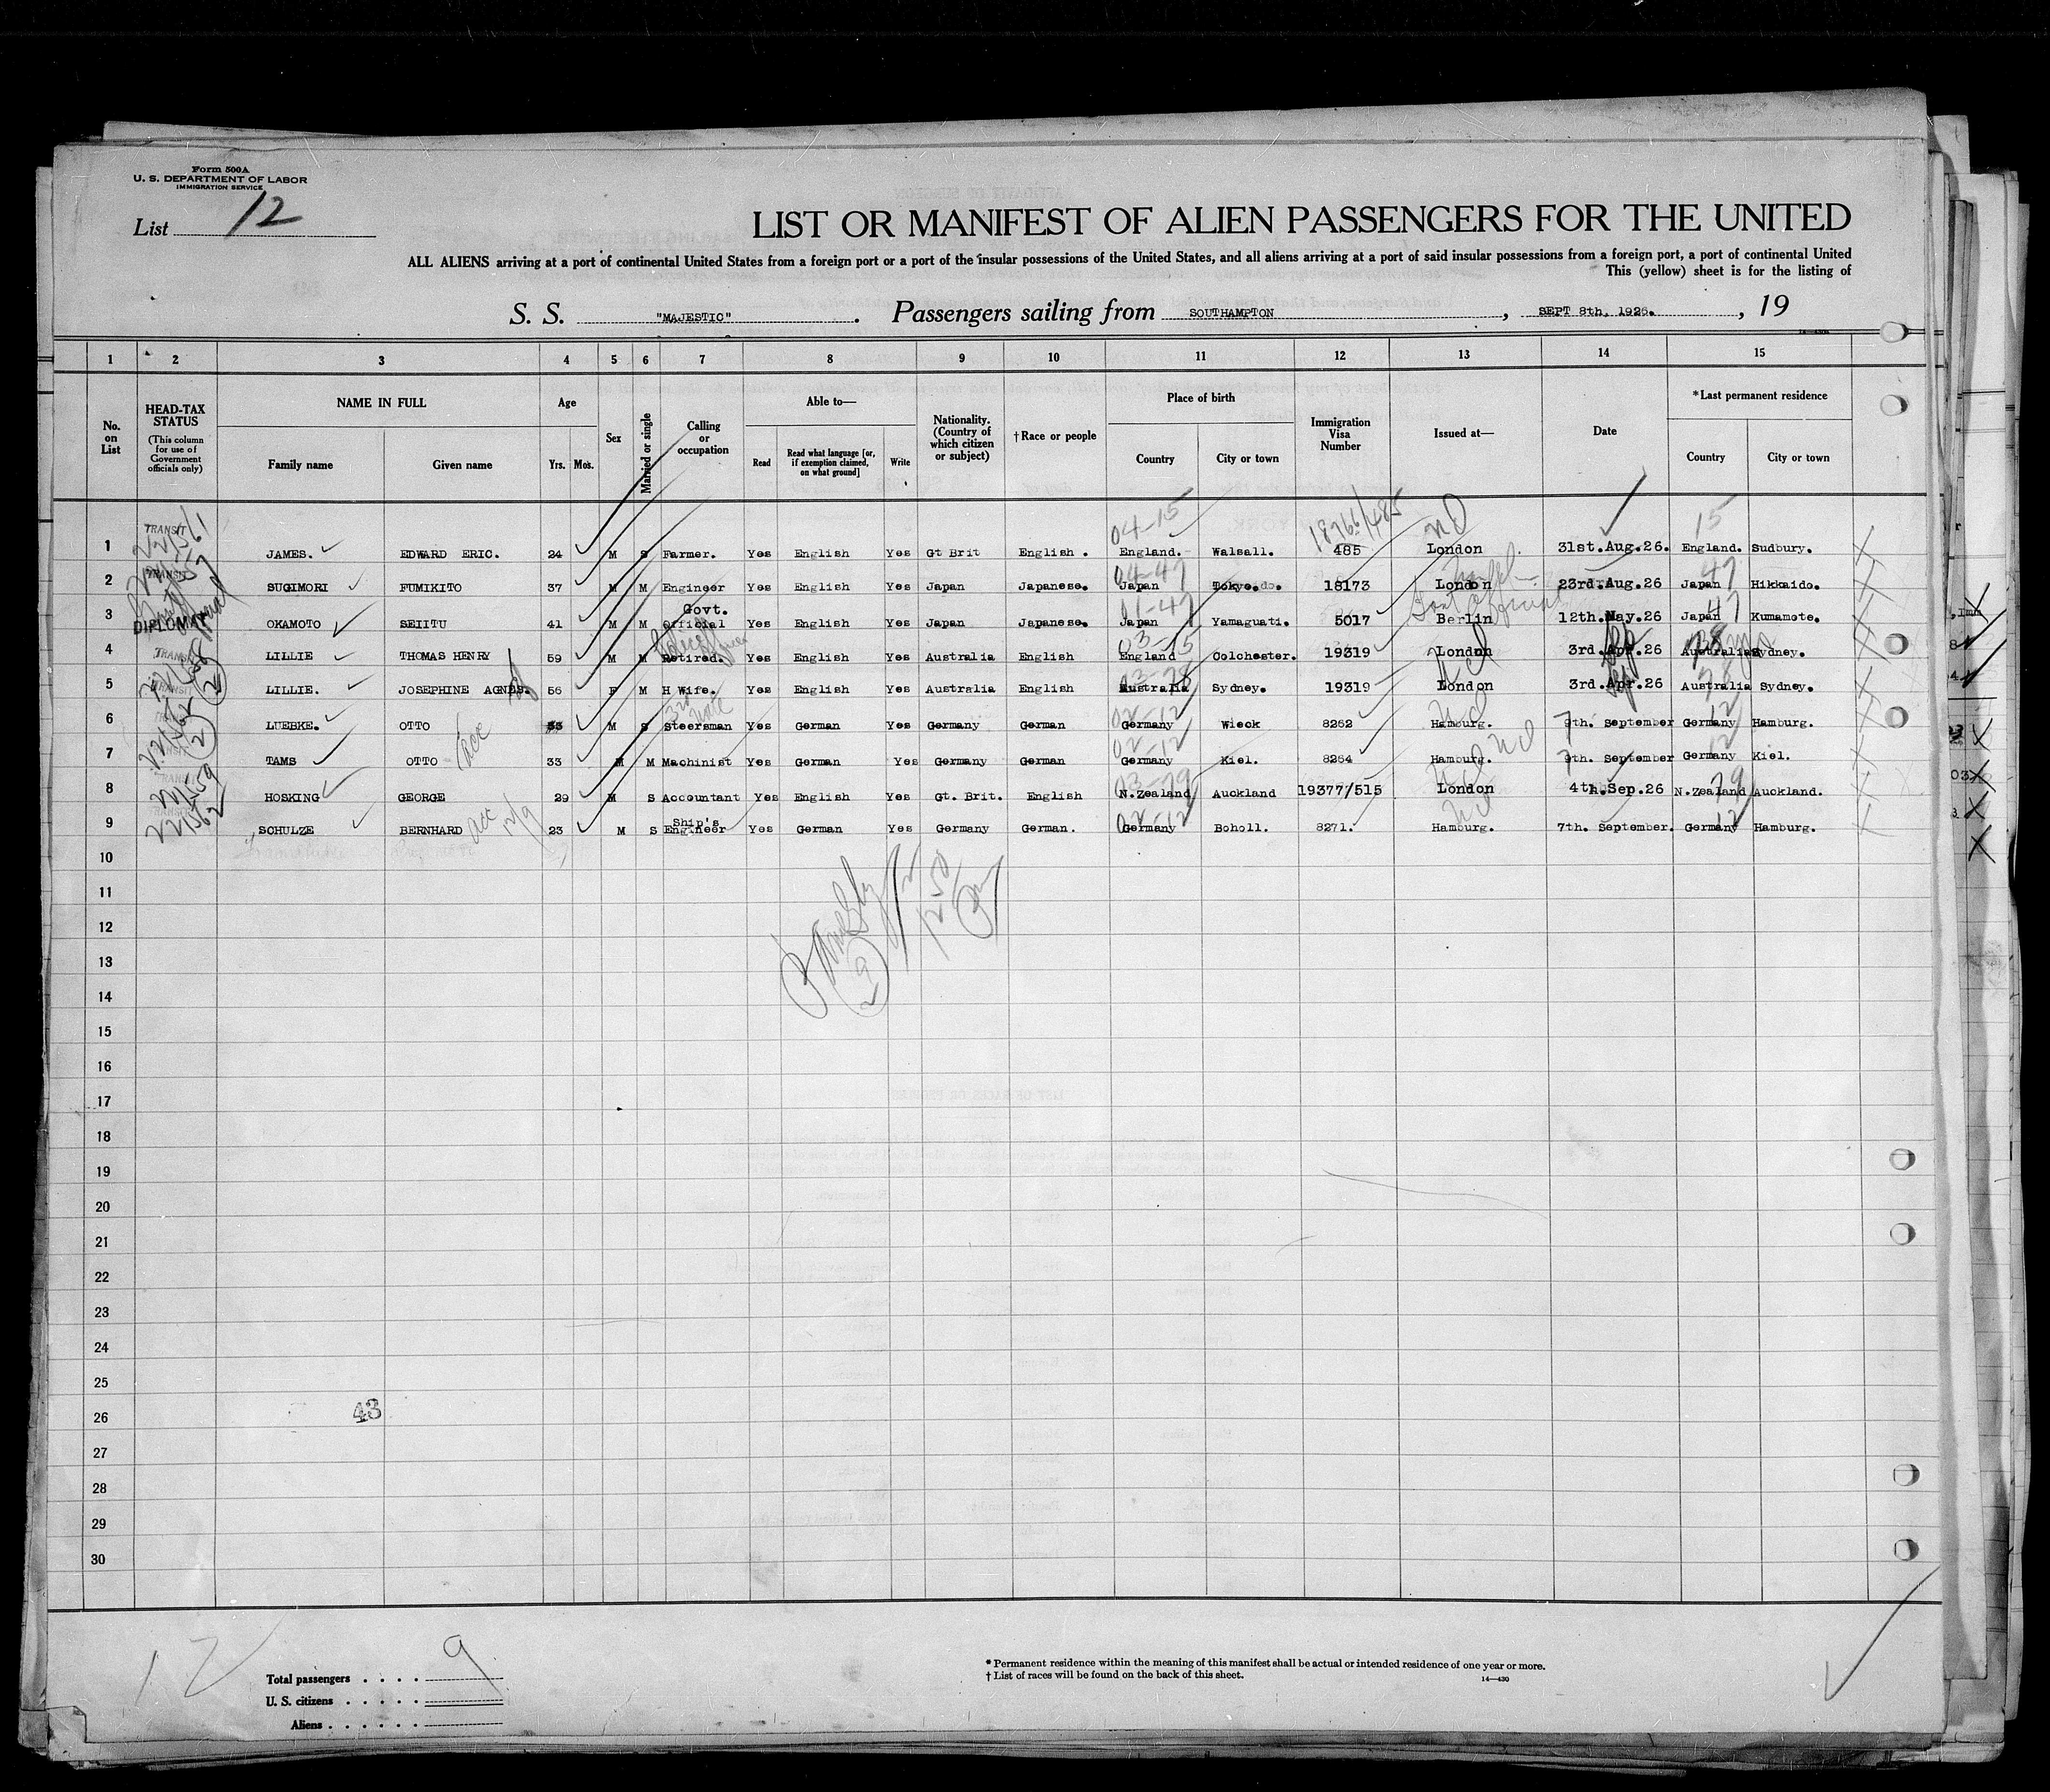 Form 500A
U. S. DEPARTMENT OF LABOR
IMMIGRATION SERVICE
List 12
LIST OR MANIFEST OF ALIEN PASSENGERS FOR THE UNITED
ALL ALIENS arriving at a port of continental United States from a foreign port or a port of the insular possessions of the United States, and all aliens arriving at a port of said insular possessions from a foreign port, a port of continental United
This (yellow) sheet is for the listing of
S. S. "MAJESTIC". Passengers sailing from SOUTHAMPTON, SEPT 8th, 1926., 19
1 2 3 4 5 6 7 8 9 10 11 12 13 14 15
No. on List
HEAD-TAX STATUS
(This column for use of Government officials only)
NAME IN FULL
Family name Given name
Age
Yrs. Mos.
Sex
Married or single
Calling or occupation
Able to—
Read
Read what language [or, if exemption claimed, on what ground]
Write
Nationality. (Country of which citizen or subject)
†Race or people
Place of birth
Country City or town
Immigration Visa Number
Issued at—
Date
*Last permanent residence
Country City or town
04-15 18766/485 nd 15
1 TRANSIT JAMES. EDWARD ERIC. 24 M S Farmer. Yes English Yes Gt Brit English. England. Walsall. 485 London 31st.Aug.26. England. Sudbury.
04-47 47
2 TRANSIT SUGIMORI FUMIKITO 37 M M Engineer Yes English Yes Japan Japanese. Japan 18173 London 23rd.Aug.26 Japan Hikkaido.
47
3 DIPLOMAT OKAMOTO SEIITU 41 M M Govt. Official Yes English Yes Japan Japanese. Japan Yamaguati. 5017 Berlin 12th.May.26 Japan Kumamote.
4 TRANSIT LILLIE THOMAS HENRY 59 M M Retired. Yes English Yes Australia English England Colchester. 19319 London 3rd.Apr.26 Australia Sydney.
5 LILLIE. JOSEPHINE AGNES. 56 F M H Wife. Yes English Yes Australia English Australia Sydney. 19319 London 3rd.Apr.26 Australia Sydney.
02-12 12
6 LUEBKE. OTTO M S Steersman Yes German Yes Germany German Germany Wieck 8262 Hamburg. 7 9th. September Germany Hamburg.
02-12 12
7 TAMS OTTO 33 M M Machinist Yes German Yes Germany German Germany Kiel. 8264 Hamburg. 7 9th. September Germany Kiel.
03-29 29
8 HOSKING GEORGE 29 M S Accountant Yes English Yes Gt. Brit. English N.Zealand Auckland 19377/515 London 4th.Sep.26 N.Zealand Auckland.
02-12 12
9 SCHULZE BERNHARD 23 M S Ship's Engineer Yes German Yes Germany German. Germany Boholl. 8271. Hamburg. 7th. September. Germany Hamburg.
10
11
12
13
14
15
16
17
18
19
20
21
22
23
24
25
26 43
27
28
29
30
12
Total passengers . . . . 9
U. S. citizens . . . . .
Aliens . . . . . .
* Permanent residence within the meaning of this manifest shall be actual or intended residence of one year or more.
† List of races will be found on the back of this sheet.
14—430